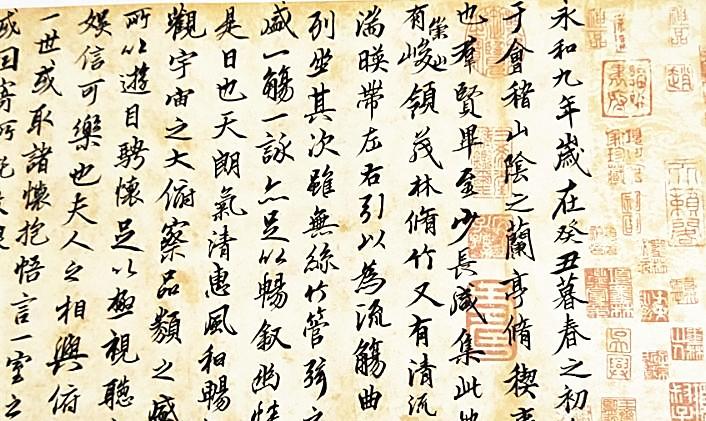 永和九年歲在癸丑暮春之初
于會稽山陰之蘭亭脩稧事
也羣賢畢至少長咸集此地
有崇山峻領茂林脩竹又有清流
湍暎帶左右引以為流觴曲
列坐其次雖無絲竹管弦之
盛一觴一詠亦足以暢叙幽情
是日也天朗氣清惠風和暢
觀宇宙之大俯察品類之盛
所以遊目騁懷足以極視聽
娛信可樂也夫人之相與俯
一世或取諸懷抱悟言一室之
或因寄所託放浪